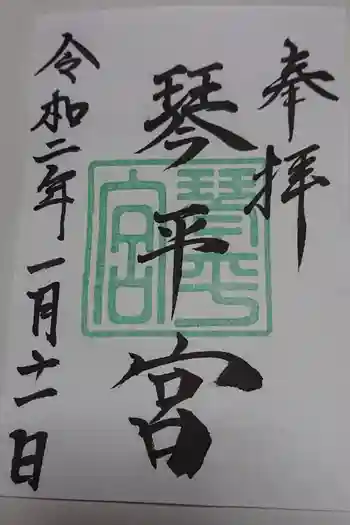 奉拝
琴平宮
琴平宮
令和二年一月十一日